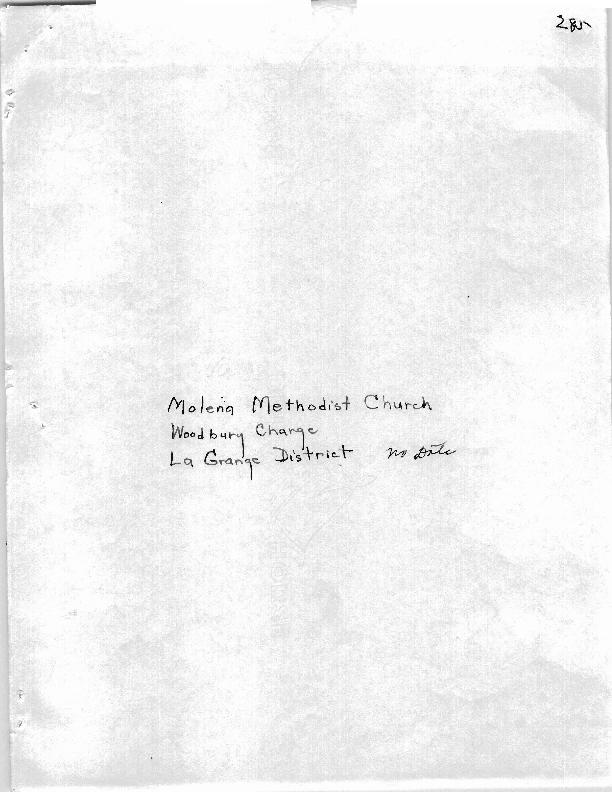 Molena Methodist Church
Woodbury Charge
La Grange District no Date